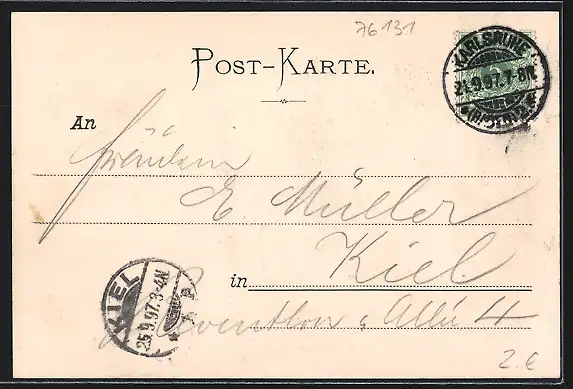 76131
POST-KARTE.
KARLSRUHE
21.9.97.7-8N.
(BADEN) 2.
An
Fräulein
E. Müller
Kiel
in
Reventlou Allée 4
KIEL
25.9.97.3-4N
2.€